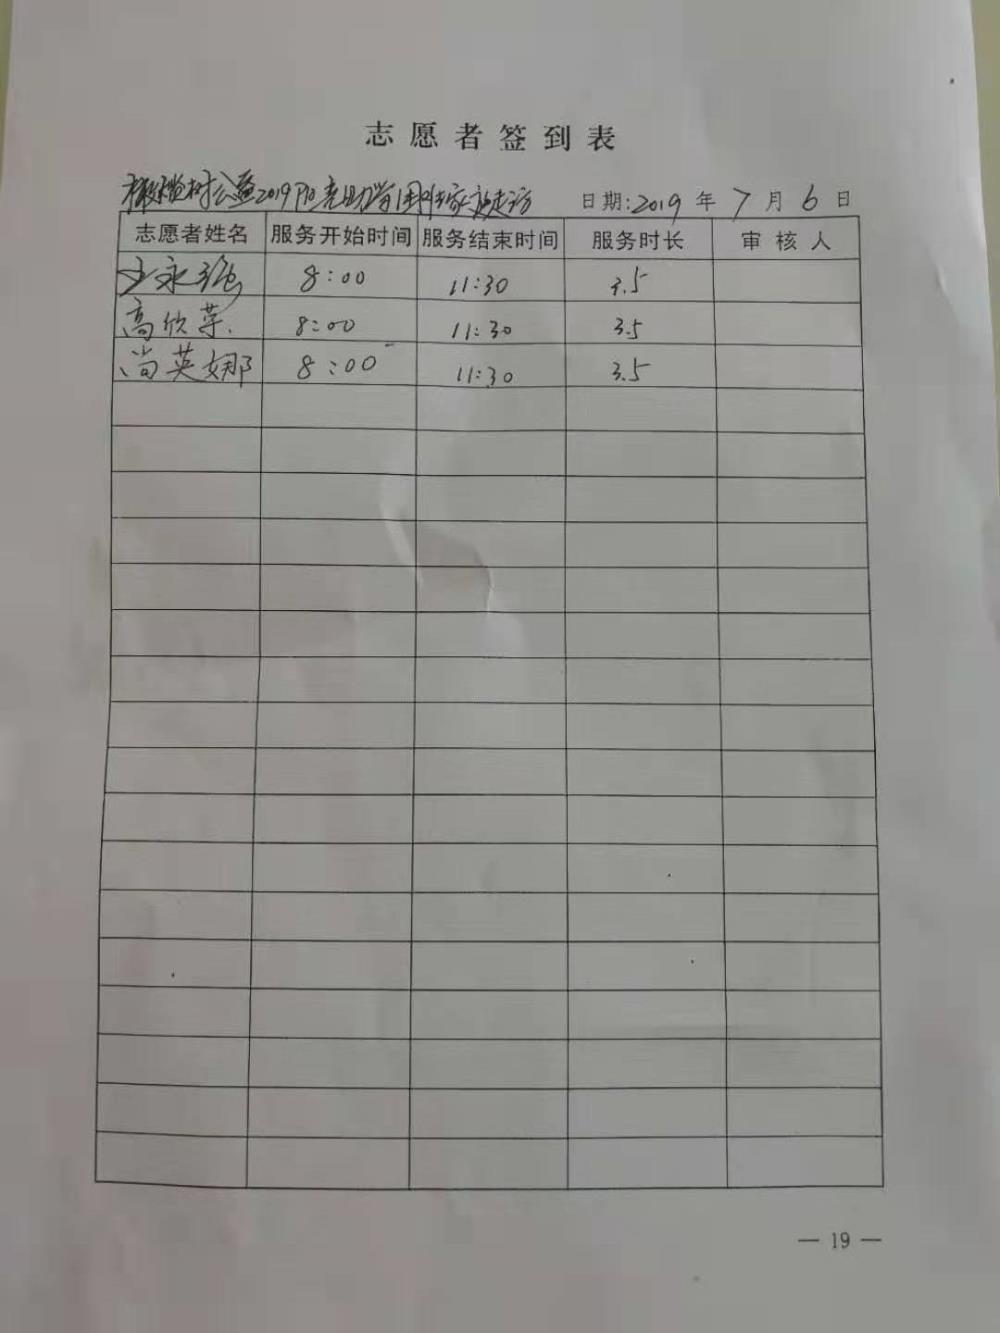 志愿者签到表
橄榄树公益2019阳光助学困难家庭走访 日期:2019年7月6日
志愿者姓名 服务开始时间 服务结束时间 服务时长 审核人
王永强 8:00 11:30 3.5
高欣 8:00 11:30 3.5
尚英娜 8:00 11:30 3.5
— 19 —